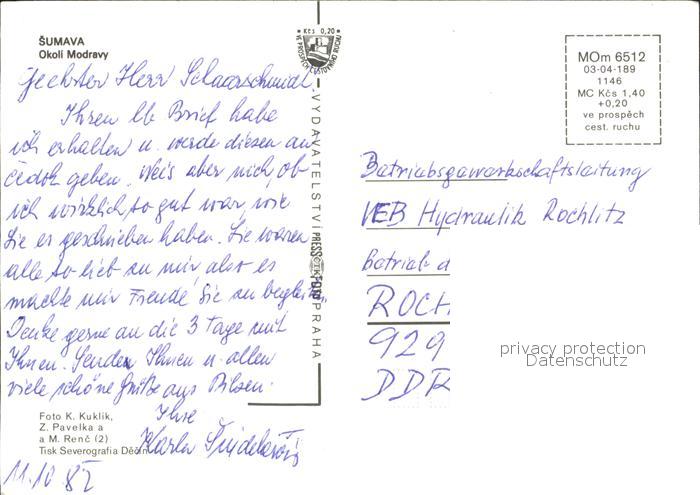 ŠUMAVA
Okolí Modravy
Geehrter Herr Schauerschmidt
Ihren lb. Brief habe
ich erhalten u. werde diesen an
Čedok geben. Weis aber nich, ob
ich wirklich so gut war, wie
Sie es geschrieben haben. Sie waren
alle so lieb zu mir, also es
machte mir Freude Sie zu begleiten.
Denke gerne an die 3 Tage mit
Ihnen. Sende Ihnen u. allen
viele schöne Grüße aus Pilsen.
Ihre
Foto K. Kuklík,
Z. Pavelka a
a M. Renč (2)
Tisk Severografia Děčín
11.10 82
Kčs 0,20
VE PROSPĚCH CESTOVNÍHO RUCHU
VYDAVATELSTVÍ PRESSFOTO PRAHA
ČTK
MOm 6512
03-04-189
1146
MC Kčs 1,40
+0,20
ve prospěch
cest. ruchu
Betriebsgewerkschaftsleitung
VEB Hydraulik Rochlitz
Betrieb d
ROCH
929
DDR
privacy protection
Datenschutz